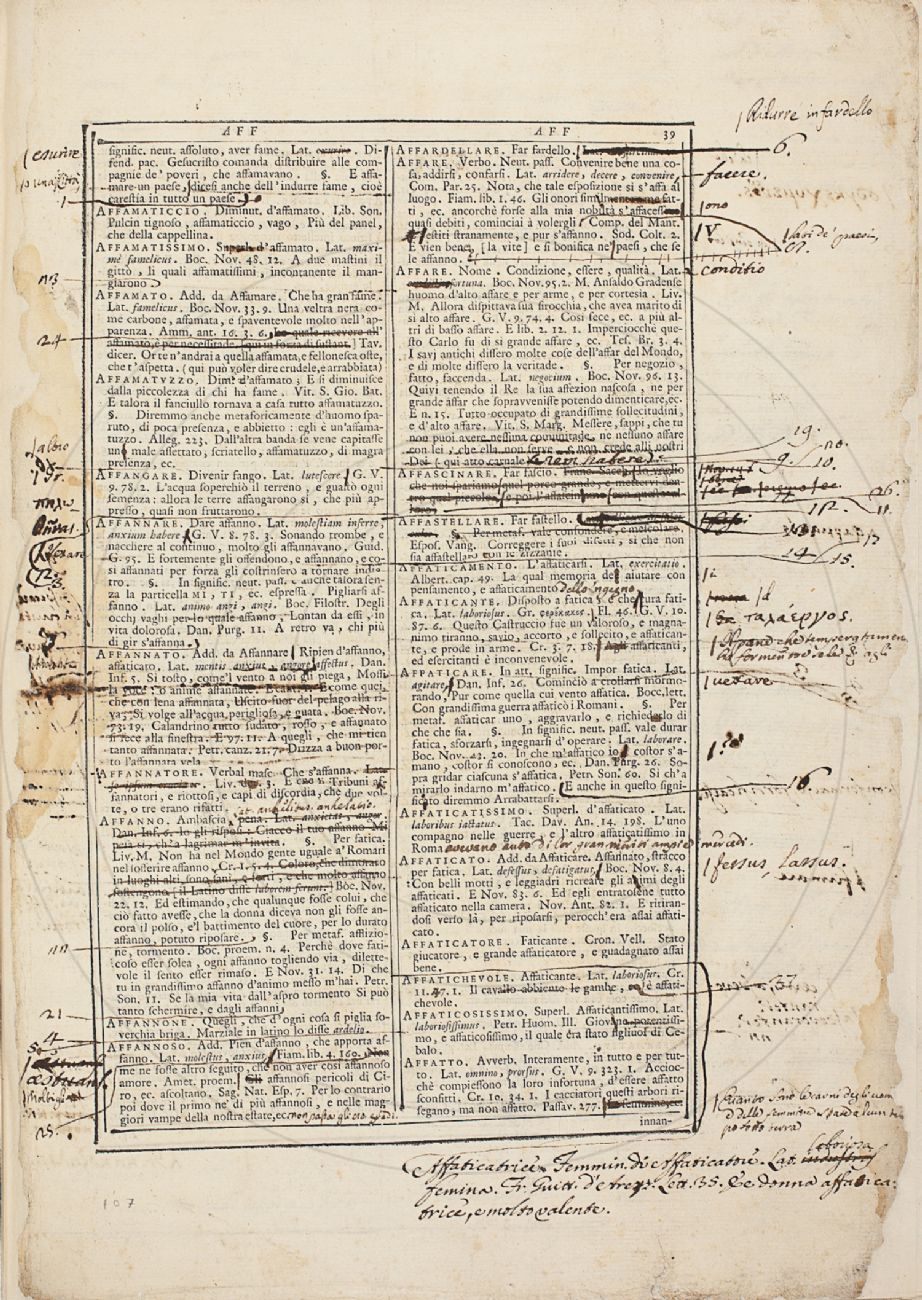 Ridurre in fardello
AFF
AFF
39
signific. neut. assoluto, aver fame. Lat. Di-
fend. pac. Gesucristo comanda distribuire alle com-
pagnie de' poveri, che affamavano. §. E affa-
mare un paese, dicesi anche dell'indurre fame, cioè
carestia in tutto un paese.
AFFAMATICCIO. Diminut. d'affamato. Lib. Son.
Pulcin tignoso, affamaticcio, vago, Più del panel,
che della cappellina.
AFFAMATISSIMO. Superl. d'affamato. Lat. maxi-
mè famelicus. Boc. Nov. 48. 12. A due mastini il
gittò, li quali affamatissimi, incontanente il man-
giarono
AFFAMATO. Add. da Affamare. Che ha gran fame.
Lat. famelicus. Boc. Nov. 33. 9. Una veltra nera co-
me carbone, affamata, e spaventevole molto nell'ap-
parenza. Amm. ant. 16. 3. 6. lo quale ricevere all'
affamato, è per necessitade. [qui in forza di sustant.] Tav.
dicer. Or te n'andrai a quella affamata, e fellonesca oste,
che t'aspetta. (qui può voler dire crudele, e arrabbiata)
AFFAMATUZZO. Dim. d'affamato; E si diminuisce
dalla piccolezza di chi ha fame. Vit. S. Gio. Bat.
E talora il fanciullo tornava a casa tutto affamatuzzo.
§. Diremmo anche metaforicamente d'huomo spa-
ruto, di poca presenza, e abbietto: egli è un'affama-
tuzzo. Alleg. 223. Dall'altra banda se vene capitasse
un male assettato, scriatello, affamatuzzo, di magra
presenza, ec.
AFFANGARE. Divenir fango. Lat. lutescere. G. V.
9. 78. 2. L'acqua soperchiò il terreno, e guastò ogni
semenza: allora le terre affangarono sì, che più ap-
presso, quasi non fruttarono.
AFFANNARE. Dare affanno. Lat. molestiam inferre,
anxium habere G. V. 8. 78. 3. Sonando trombe, e
nacchere al continuo, molto gli affannavano. Guid.
G. 95. E fortemente gli offendono, e affannano, e co-
sì affannati per forza gli costrinsero a tornare indie-
tro. §. In signific. neut. pass. e anche talora sen-
za la particella MI, TI, ec. espressa. Pigliarsi af-
fanno. Lat. animo angi, angi. Boc. Filostr. Degli
occhi vaghi per lo quale affanno, Lontan da essi, in
vita dolorosa. Dan. Purg. 11. A retro va, chi più
di gir s'affanna.
AFFANNATO. Add. da Affannare Ripien d'affanno,
affaticato. Lat. mentis anxius, angore affectus. Dan.
Inf. 5. Sì tosto, come'l vento a noi gli piega, Mossi
la voce: o anime affannate. E come quei,
che con lena affannata, Uscito fuor del pelago alla ri-
va, Si volge all'acqua perigliosa, e guata. Boc. Nov.
73. 19. Calandrino tutto sudato, rosso, e affannato
si fece alla finestra. E 97. 11. A quegli, che mi tien
tanto affannata. Petr. canz. 21. 7. Dirizza a buon por-
to l'affannata vela
AFFANNATORE. Verbal masc. Che s'affanna.
Liv. 3. E eno v. Tribuni af-
fannatori, e riottosi, e capi di discordia, che due vol-
te, o tre erano rifatti.
AFFANNO. Ambascia, pena. Lat. anxietas, angor.
Dan. Inf. 6. Io gli risposi: Ciacco il tuo affanno Mi
pesa sì, ch'a lagrimar m'invita. §. Per fatica.
Liv. M. Non ha nel Mondo gente uguale a' Romani
nel sofferire affanno. Cr. 1. 5. 4. Coloro, che dimorano
in luoghi alti, sono sani, e forti, e che molto affanno
sostengono. [il Latino disse laborem ferunt] Boc. Nov.
22. 12. Ed estimando, che qualunque fosse colui, che
ciò fatto avesse, che la donna diceva non gli fosse an-
cora il polso, e'l battimento del cuore, per lo durato
affanno, potuto riposare. §. Per metaf. afflizio-
ne, tormento. Boc. proem. n. 4. Perchè dove fati-
coso esser solea, ogni affanno togliendo via, dilette-
vole il sento esser rimaso. E Nov. 31. 14. Di che
tu in grandissimo affanno d'animo messo m'hai. Petr.
Son. 11. Se la mia vita dall'aspro tormento Si può
tanto schermire, e dagli affanni,
AFFANNONE. Quegli, che d'ogni cosa si piglia so-
verchia briga. Marziale in latino lo disse ardelio.
AFFANNOSO. Add. Pien d'affanno, che apporta af-
fanno. Lat. molestus, anxius. Fiam. lib. 4. 160. Non
me ne fosse altro seguito, che non aver così affannoso
amore. Amet. proem. Gli affannosi pericoli di Ci-
ro, ec. ascoltano. Sag. Nat. Esp. 7. Per lo contrario
poi dove il primo ne' dì più affannosi, e nelle mag-
giori vampe della nostra estate, ec.
AFFARDELLARE. Far fardello.
AFFARE, Verbo. Neut. pass. Convenire bene una co-
sa, addirsi, confarsi. Lat. arridere, decere, convenire,
Com. Par. 25. Nota, che tale esposizione si s'affà al
luogo. Fiam. lib. 1. 46. Gli onori simil fat-
ti, ec. ancorchè forse alla mia nobiltà s'affacessero
quasi debiti, cominciai a volergli Comp. del Mant.
Vestiri stranamente, e pur s'affanno. Sod. Colt. 2.
Vien bene, [la vite] e si bonifica ne' paesi, che se
le affanno.
AFFARE. Nome. Condizione, essere, qualità. Lat.
fortuna. Boc. Nov. 95. 2. M. Ansaldo Gradense
huomo d'alto affare e per arme, e per cortesia. Liv.
M. Allora dispittava sua sirocchia, che avea marito di
sì alto affare. G. V. 9. 74. 4. Così fece, ec. a più al-
tri di basso affare. E lib. 2. 12. 1. Imperciocchè que-
sto Carlo fu di sì grande affare, ec. Tes. Br. 3. 4.
I savj antichi dissero molte cose dell'affar del Mondo,
e di molte dissero la veritade. §. Per negozio,
fatto, faccenda. Lat. negotium. Boc. Nov. 96. 13.
Quivi tenendo il Re la sua affezion nascosa, ne per
grande affar che sopravvenisse potendo dimenticare, ec.
E n. 15. Tutto occupato di grandissime sollecitudini,
e d'alto affare. Vit. S. Marg. Messere, sappi, che tu
non puoi avere nessuna comunitade, ne nessuno affare
con lei, che ella non serve, e non crede alli nostri
Dei (qui atto carnale rem habere).
AFFASCINARE. Far fascio.
AFFASTELLARE. Far fastello.
§. Per metaf. vale confondere, e mescolare.
Espos. Vang. Correggere i suoi difetti, sì che non
sia affastellato con le zizzanie.
AFFATICAMENTO. L'affaticarsi. Lat. exercitatio.
Albert. cap. 49. La qual memoria dei aiutare con
pensamento, e affaticamento dello ingegno
AFFATICANTE. Disposto a fatica, e che dura fati-
ca. Lat. laboriosus. Gr. Fl. 46. G. V. 10.
87. 6. Questo Castruccio fue un valoroso, e magna-
nimo tiranno, savio, accorto, e sollecito, e affatican-
te, e prode in arme. Cr. 3. 7. 18. affaticanti,
ed esercitanti è inconvenevole.
AFFATICARE. In att. signific. Impor fatica. Lat.
agitare. Dan. Inf. 26. Cominciò a crollarsi mormo-
rando, Pur come quella cui vento affatica. Bocc. lett.
Con grandissima guerra affaticò i Romani. §. Per
metaf. affaticar uno, aggravarlo, e richiederlo di
che che sia. §. In signific. neut. pass. vale durar
fatica, sforzarsi, ingegnarsi d'operare. Lat. laborare.
Boc. Nov. 23. 20. In che m'affatico io costor s'a-
mano, costor si conoscono, ec. Dan. Purg. 26. So-
pra gridar ciascuna s'affatica. Petr. Son. 60. Si ch'a
mirarlo indarno m'affatico. E anche in questo signi-
ficato diremmo Arrabattarsi.
AFFATICATISSIMO. Superl. d'affaticato. Lat.
laboribus iactatus. Tac. Dav. An. 14. 198. L'uno
compagno nelle guerre, e l'altro affaticatissimo in
Roma
AFFATICATO. Add. da Affaticare. Affannato, stracco
per fatica. Lat. defessus, defatigatus. Boc. Nov. 8. 4.
Con belli motti, e leggiadri ricreare gli animi degli
affaticati. E Nov. 83. 6. Ed egli entratosene tutto
affaticato nella camera. Nov. Ant. 82. 1. E ritiran-
dosi verso là, per riposarsi, perocch'era assai affati-
cato.
AFFATICATORE. Faticante. Cron. Vell. Stato
giucatore, e grande affaticatore, e guadagnato assai
bene.
AFFATICHEVOLE. Affaticante. Lat. laboriosus. Cr.
11. 47. 1. Il cavallo abbiente le gambe, è affati-
chevole.
AFFATICOSISSIMO. Superl. Affaticantissimo. Lat.
laboriosissimus. Petr. Huom. Ill. Giovane potentissi-
mo, e affaticosissimo, il quale era stato figliuol di Ce-
balo.
AFFATTO. Avverb. Interamente, in tutto e per tut-
to. Lat. omnino, prorsus. G. V. 9. 323. 1. Accioc-
chè compiessono la loro infortuna, d'essere affatto
sconfitti. Cr. 10. 34. 1. I cacciatori questi arbori ri-
segano, ma non affatto. Passav. 277.
innan-
esurire
24
21
4
25.
6.
facere.
ono
V
conditio
19.
20.
9.
10.
26.
12.
11.
14
15.
ταλάεργος.
vexare
16.
mercadi.
fessus, lassus.
27
Affaticatrice. Femmin. di Affaticatore. Lat. laboriosa
femina. Fr. Guitt. d'Arez. Lett. 35. E donna affatica-
trice, e molto valente.
107